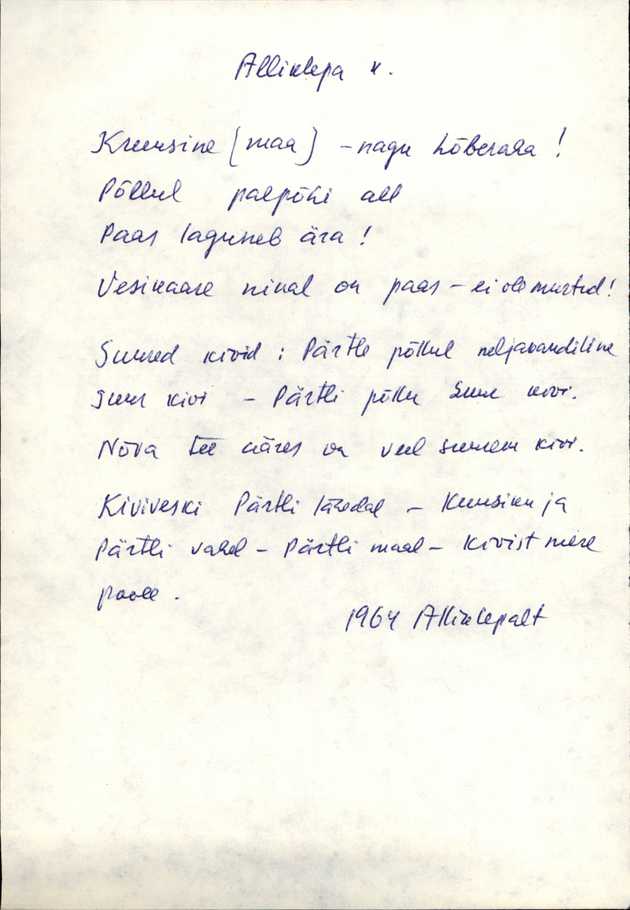 Alliklepa k.
Kruusine (maa) - nagu hõberaha!
Põllul paepõhi all
Paas laguneb ära!
Vesikaare ninal on paas - ei ole murtud!
Suured kivid: Pärtle põllul neljakandiline
suur kivi - Pärtli põllu Suur kivi.
Nõva tee ääres on veel suurem kivi.
Kiviveski Pärtli lähedal - Kuusiku ja
Pärtli vahel - Pärtli maal - Kivist mere
poole.
1964 Alliklepalt